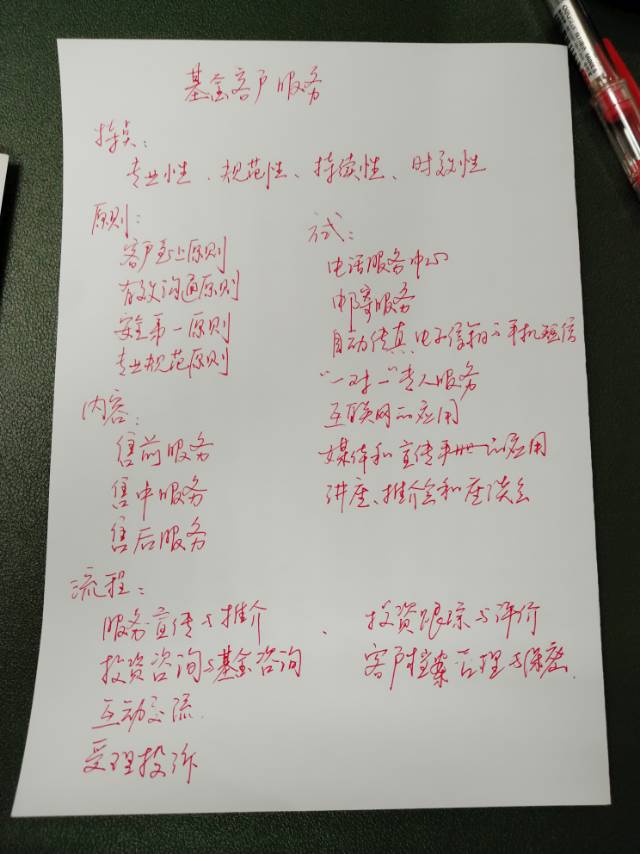 基金客户服务
特点:
专业性、规范性、持续性、时效性
原则:
客户至上原则
有效沟通原则
安全第一原则
专业规范原则
内容:
售前服务
售中服务
售后服务
方式:
电话服务中心
邮寄服务
自动传真、电子信箱与手机短信
“一对一”专人服务
互联网的应用
媒体和宣传手册的应用
讲座、推介会和座谈会
流程:
服务宣传与推介
投资咨询与基金咨询
互动交流
受理投诉
投资跟踪与评价
客户档案管理与保密